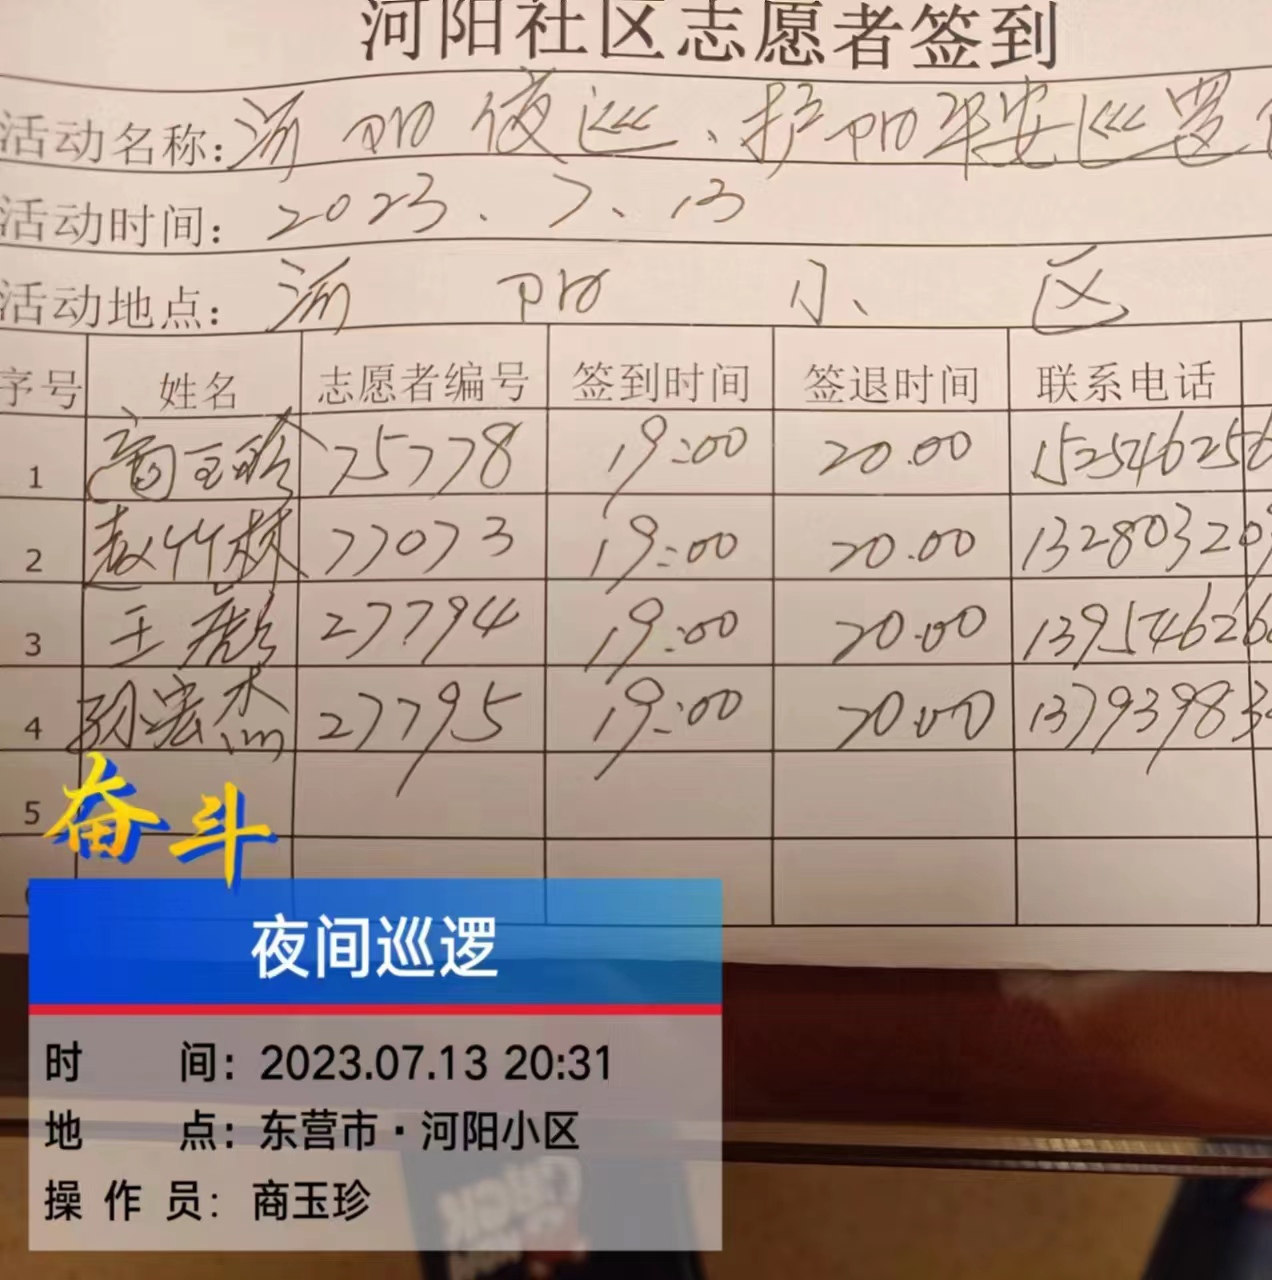 河阳社区志愿者签到
活动名称：河阳夜巡、护阳平安巡逻
活动时间：2023.7.13
活动地点：河阳小区
序号 姓名 志愿者编号 签到时间 签退时间 联系电话
1 商玉珍 75778 19:00 20.00 152546256
2 赵竹林 77073 19:00 20.00 132803209
3 王彪 27794 19:00 20.00 139546266
4 孙宏杰 27795 19:00 20.00 13793983
5
奋斗
夜间巡逻
时 间：2023.07.13 20:31
地 点：东营市·河阳小区
操作员：商玉珍